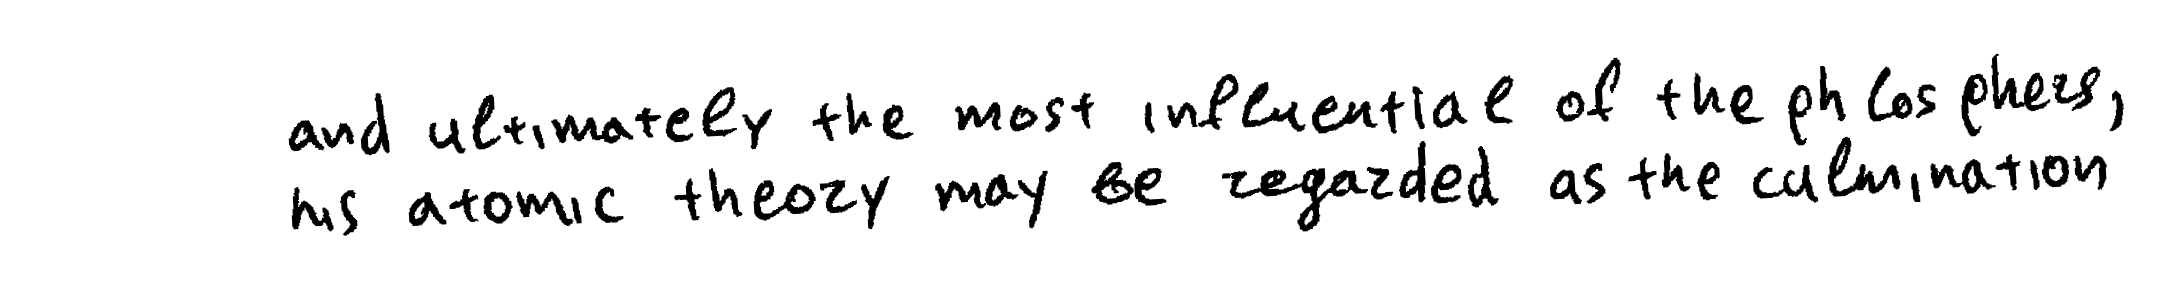 and ultimately the most influential of the phlosphers,
his atomic theory may be regarded as the culmination